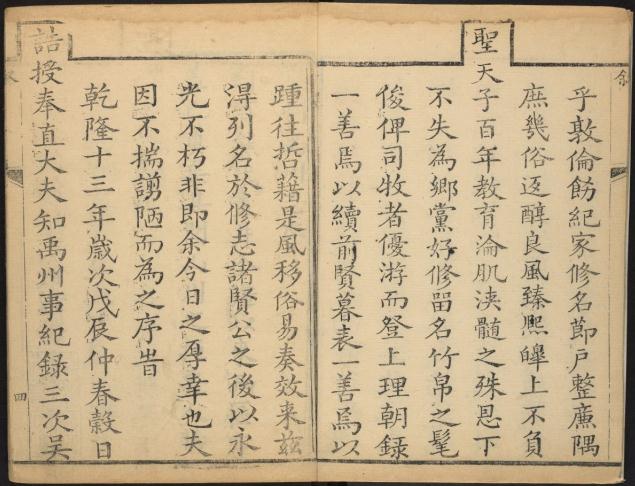 乎敦倫飭紀家修名節戶整廉隅
庶幾俗返醇良風臻熈皡上不負
聖天子百年教育淪肌浹髓之殊恩下
不失為鄉黨好修留名竹帛之髦
俊俾司牧者優游而登上理朝錄
一善焉以續前賢暮表一善焉以
踵往哲藉是風移俗易奏效来玆
淂列名於修志諸賢公之後以永
光不朽非即余今日之厚幸也夫
因不揣謭陋而為之序旹
乾隆十三年歲次戊辰仲春穀日
誥授奉直大夫知禹州事紀録三次吴
四